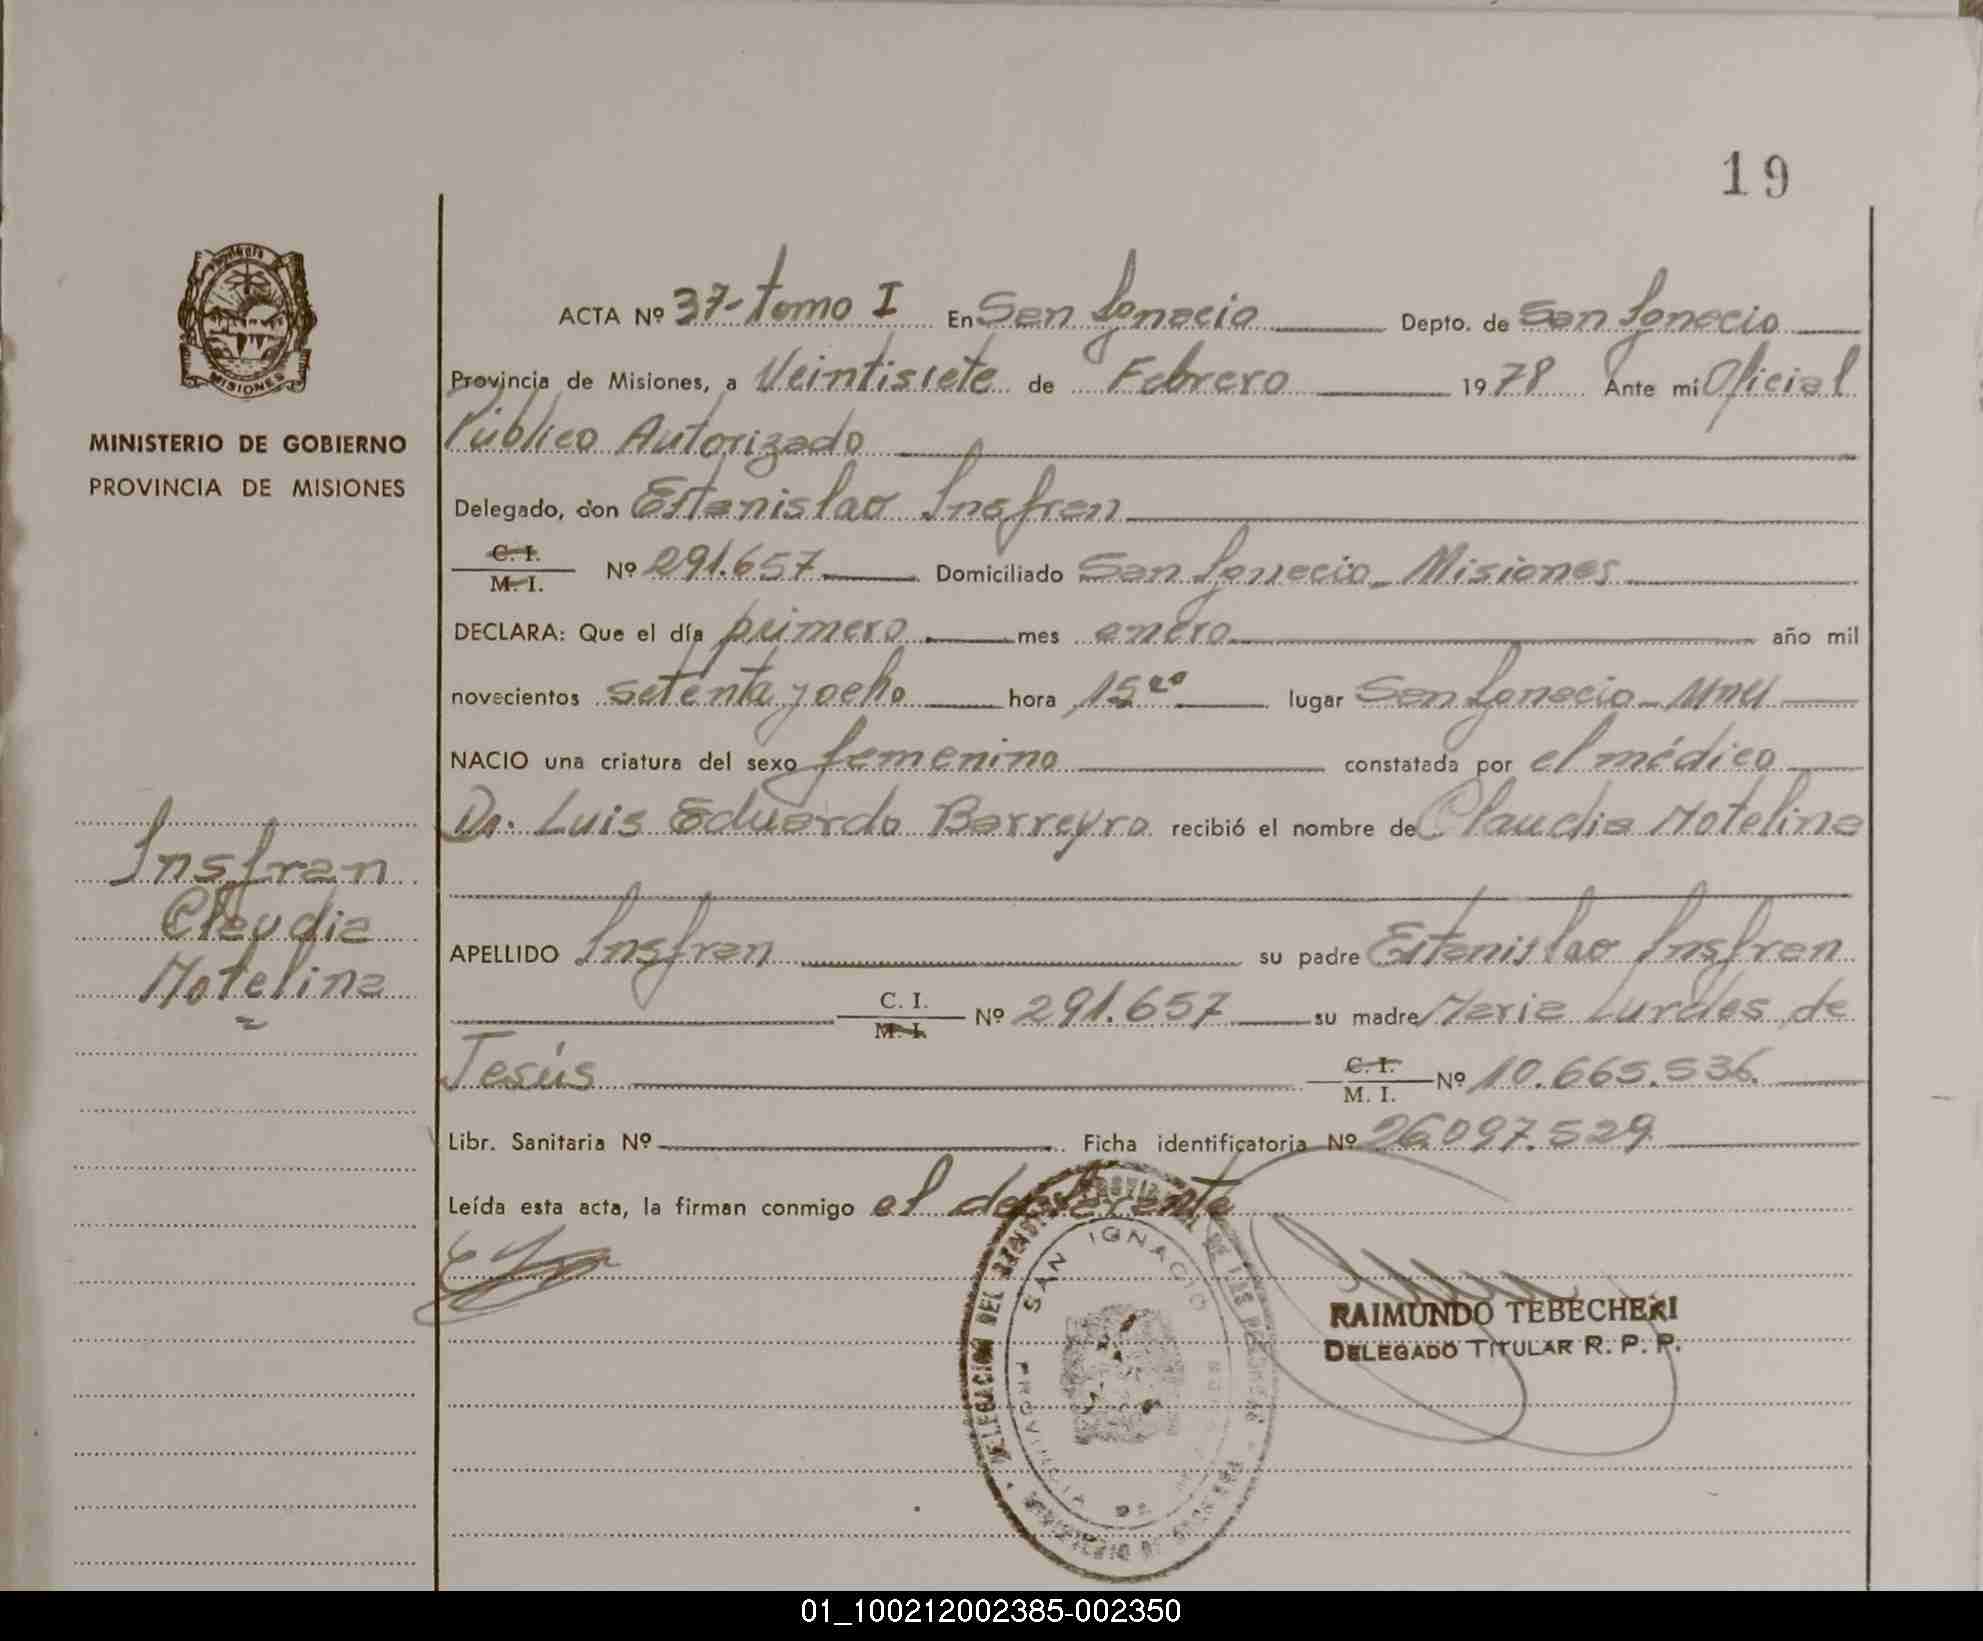 19
ACTA Nº 37-tomo I En San Ignacio Depto. de San Ignacio
Provincia de Misiones, a Veintisiete de Febrero 1978 Ante mí Oficial
Público Autorizado
MINISTERIO DE GOBIERNO
PROVINCIA DE MISIONES
Delegado, don Estanislao Insfran
C. I. / M. I. Nº 291.657 Domiciliado San Ignacio - Misiones
DECLARA: Que el día primero mes enero año mil
novecientos setenta y ocho hora 15 lugar San Ignacio -
NACIO una criatura del sexo femenino constatada por el médico
Dr. Luis Eduardo Barreyro recibió el nombre de Claudia Motelina
Insfran
Claudia
Motelina
APELLIDO Insfran su padre Estanislao Insfran
C. I. / M. I. Nº 291.657 su madre Maria Lurdes de
Jesús C. I. / M. I. Nº 10.665.536
Libr. Sanitaria Nº Ficha identificatoria Nº 26.097.529
Leída esta acta, la firman conmigo el declarante
MISIONES
DELEGACION DEL DE LAS PERSONAS
SAN IGNACIO
PROVINCIA DE
MINISTERIO DE
RAIMUNDO TEBECHERI
DELEGADO TITULAR R. P. P.
01_100212002385-002350